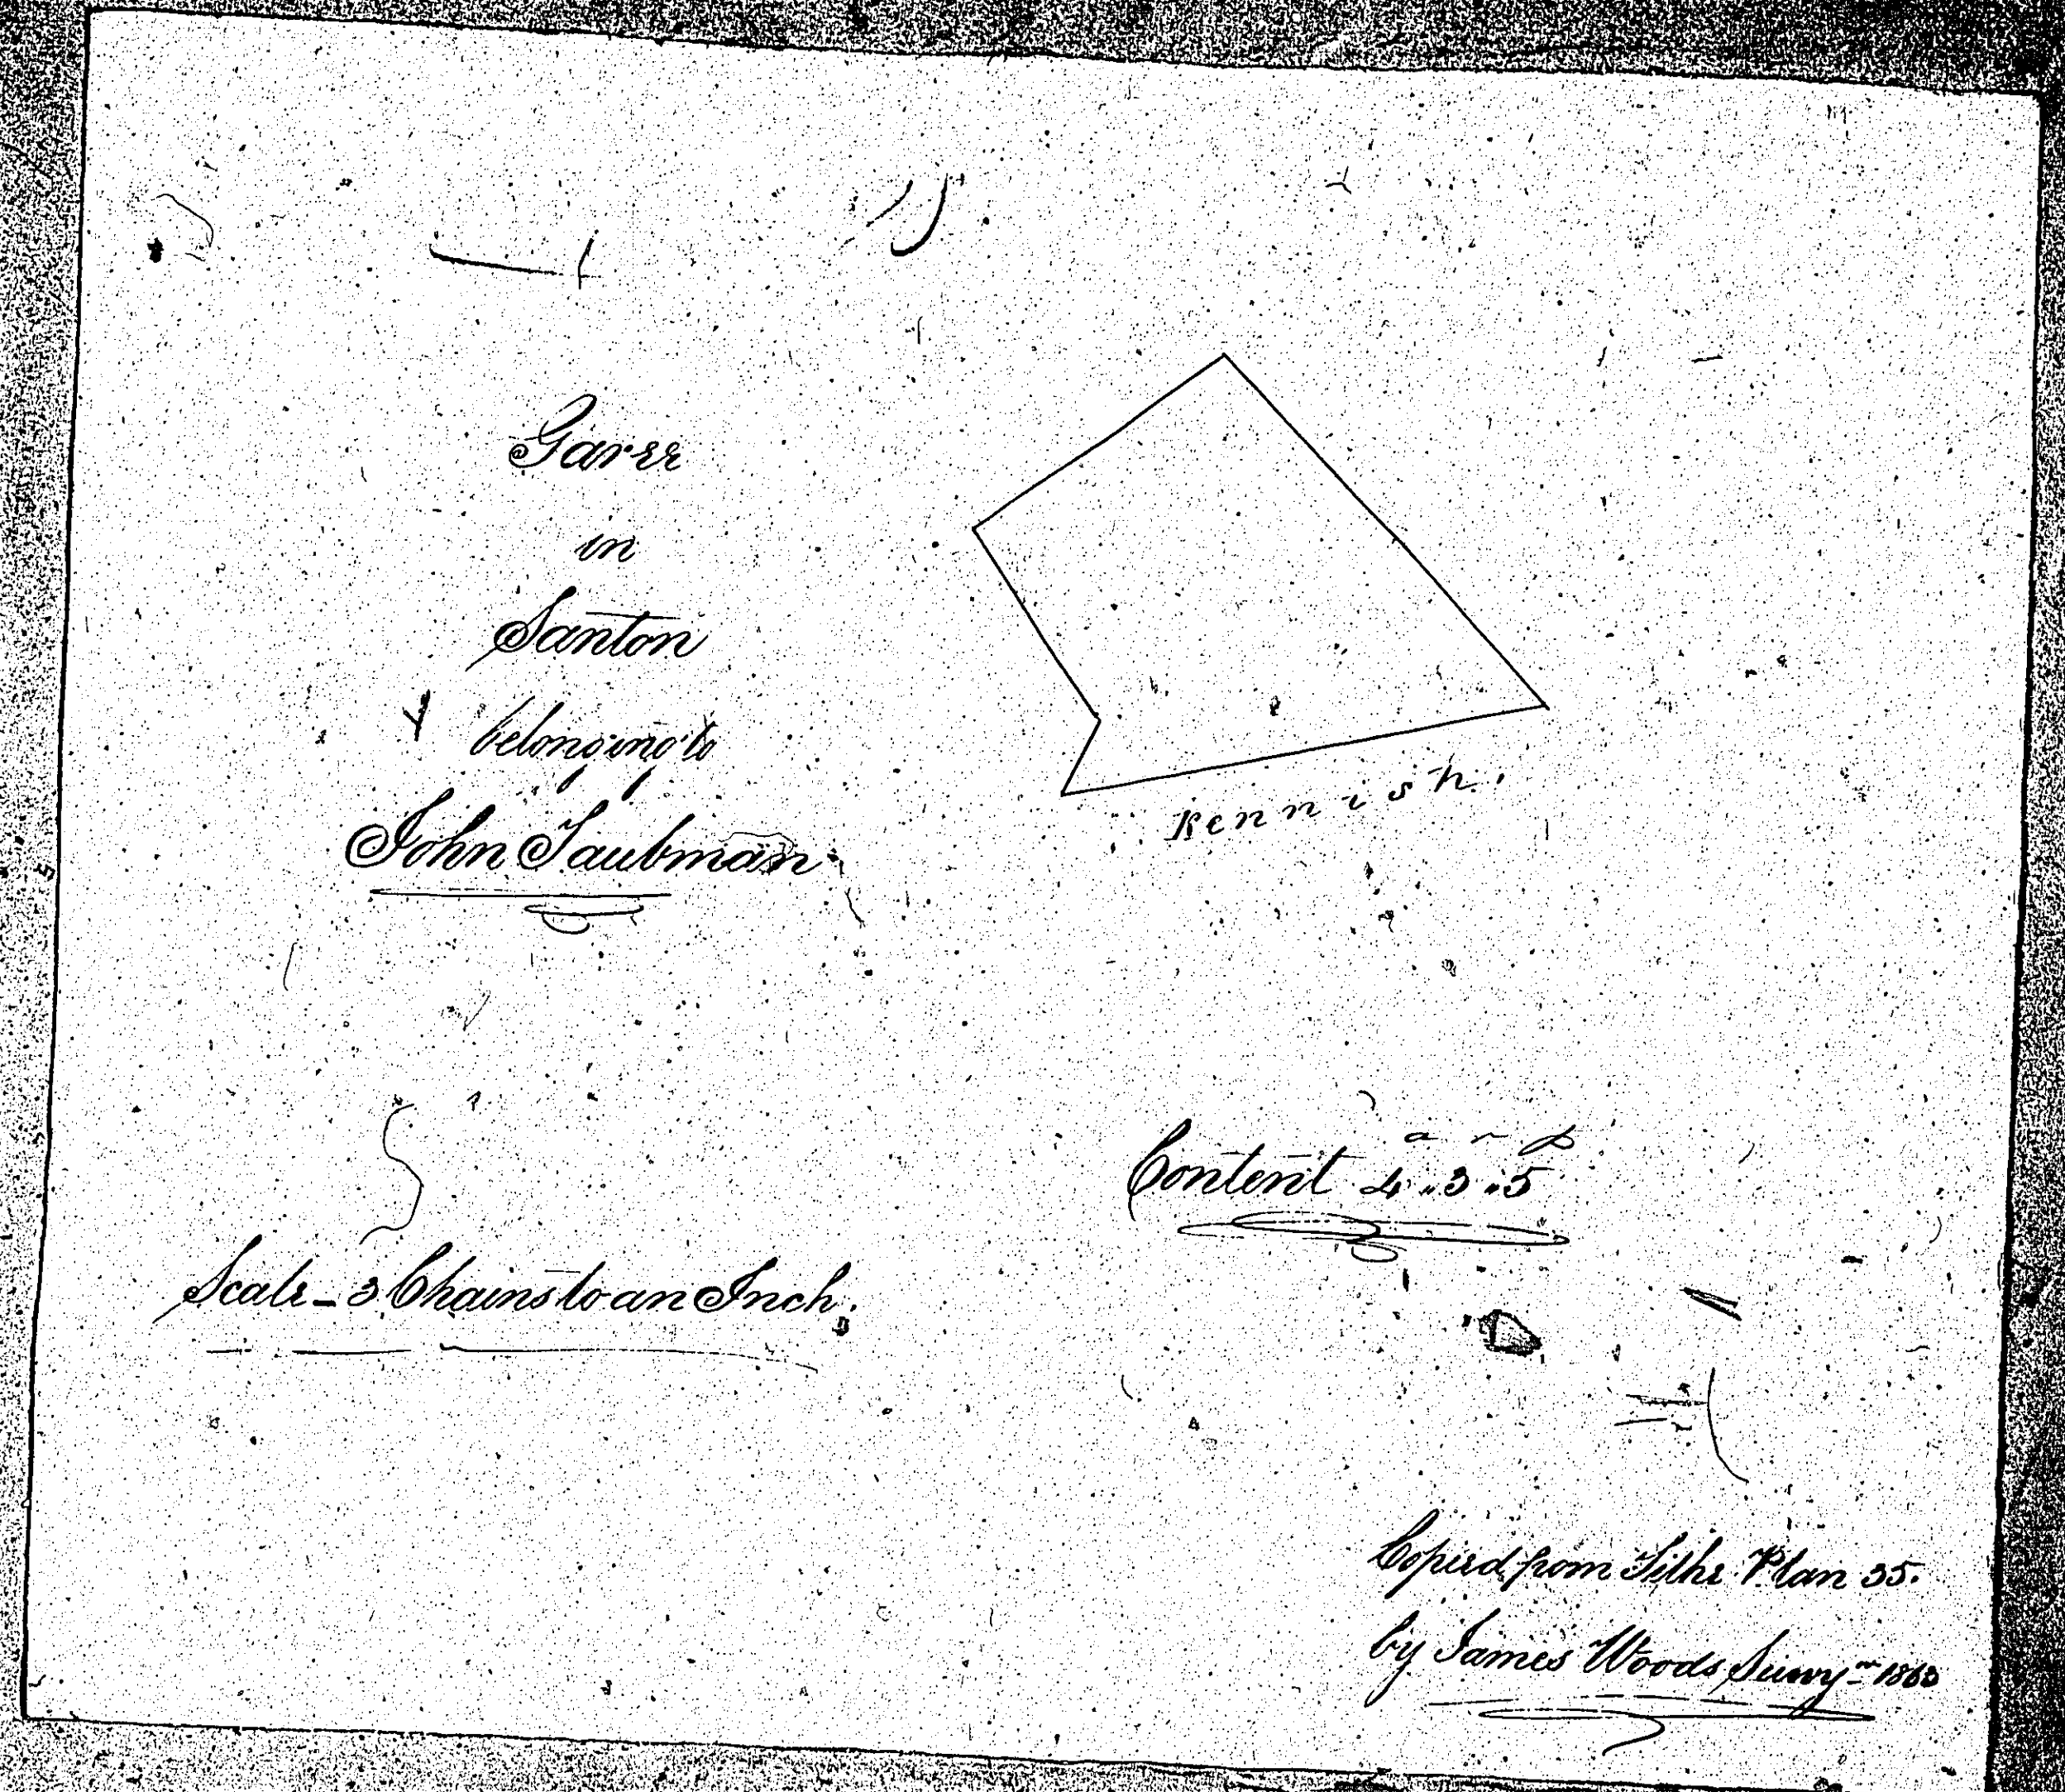 Garee
in
Santon
belonging to
John Taubman
Kennish.
a r p
Content 4..3..5
Scale - 3 Chains to an Inch.
Copied from Tithe Plan 35.
by James Woods Survyr 1863